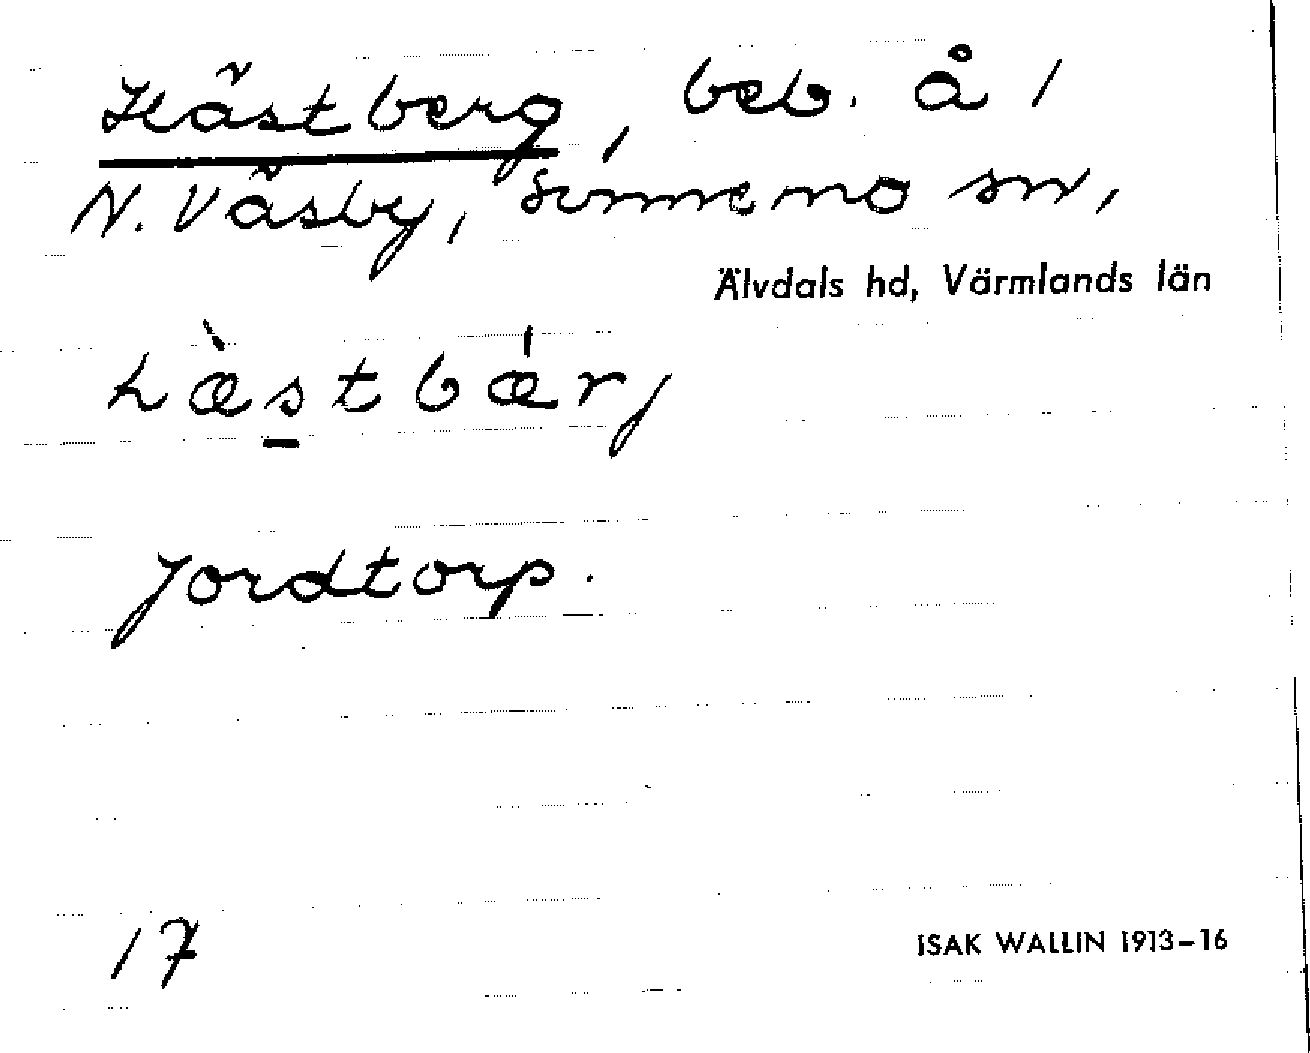 Hästberg, beb. å 1
N. Väsby, Sunnemo sn,
Älvdals hd, Värmlands län
hæ̀stbǽrj
Jordtorp.
17
ISAK WALLIN 1913–16